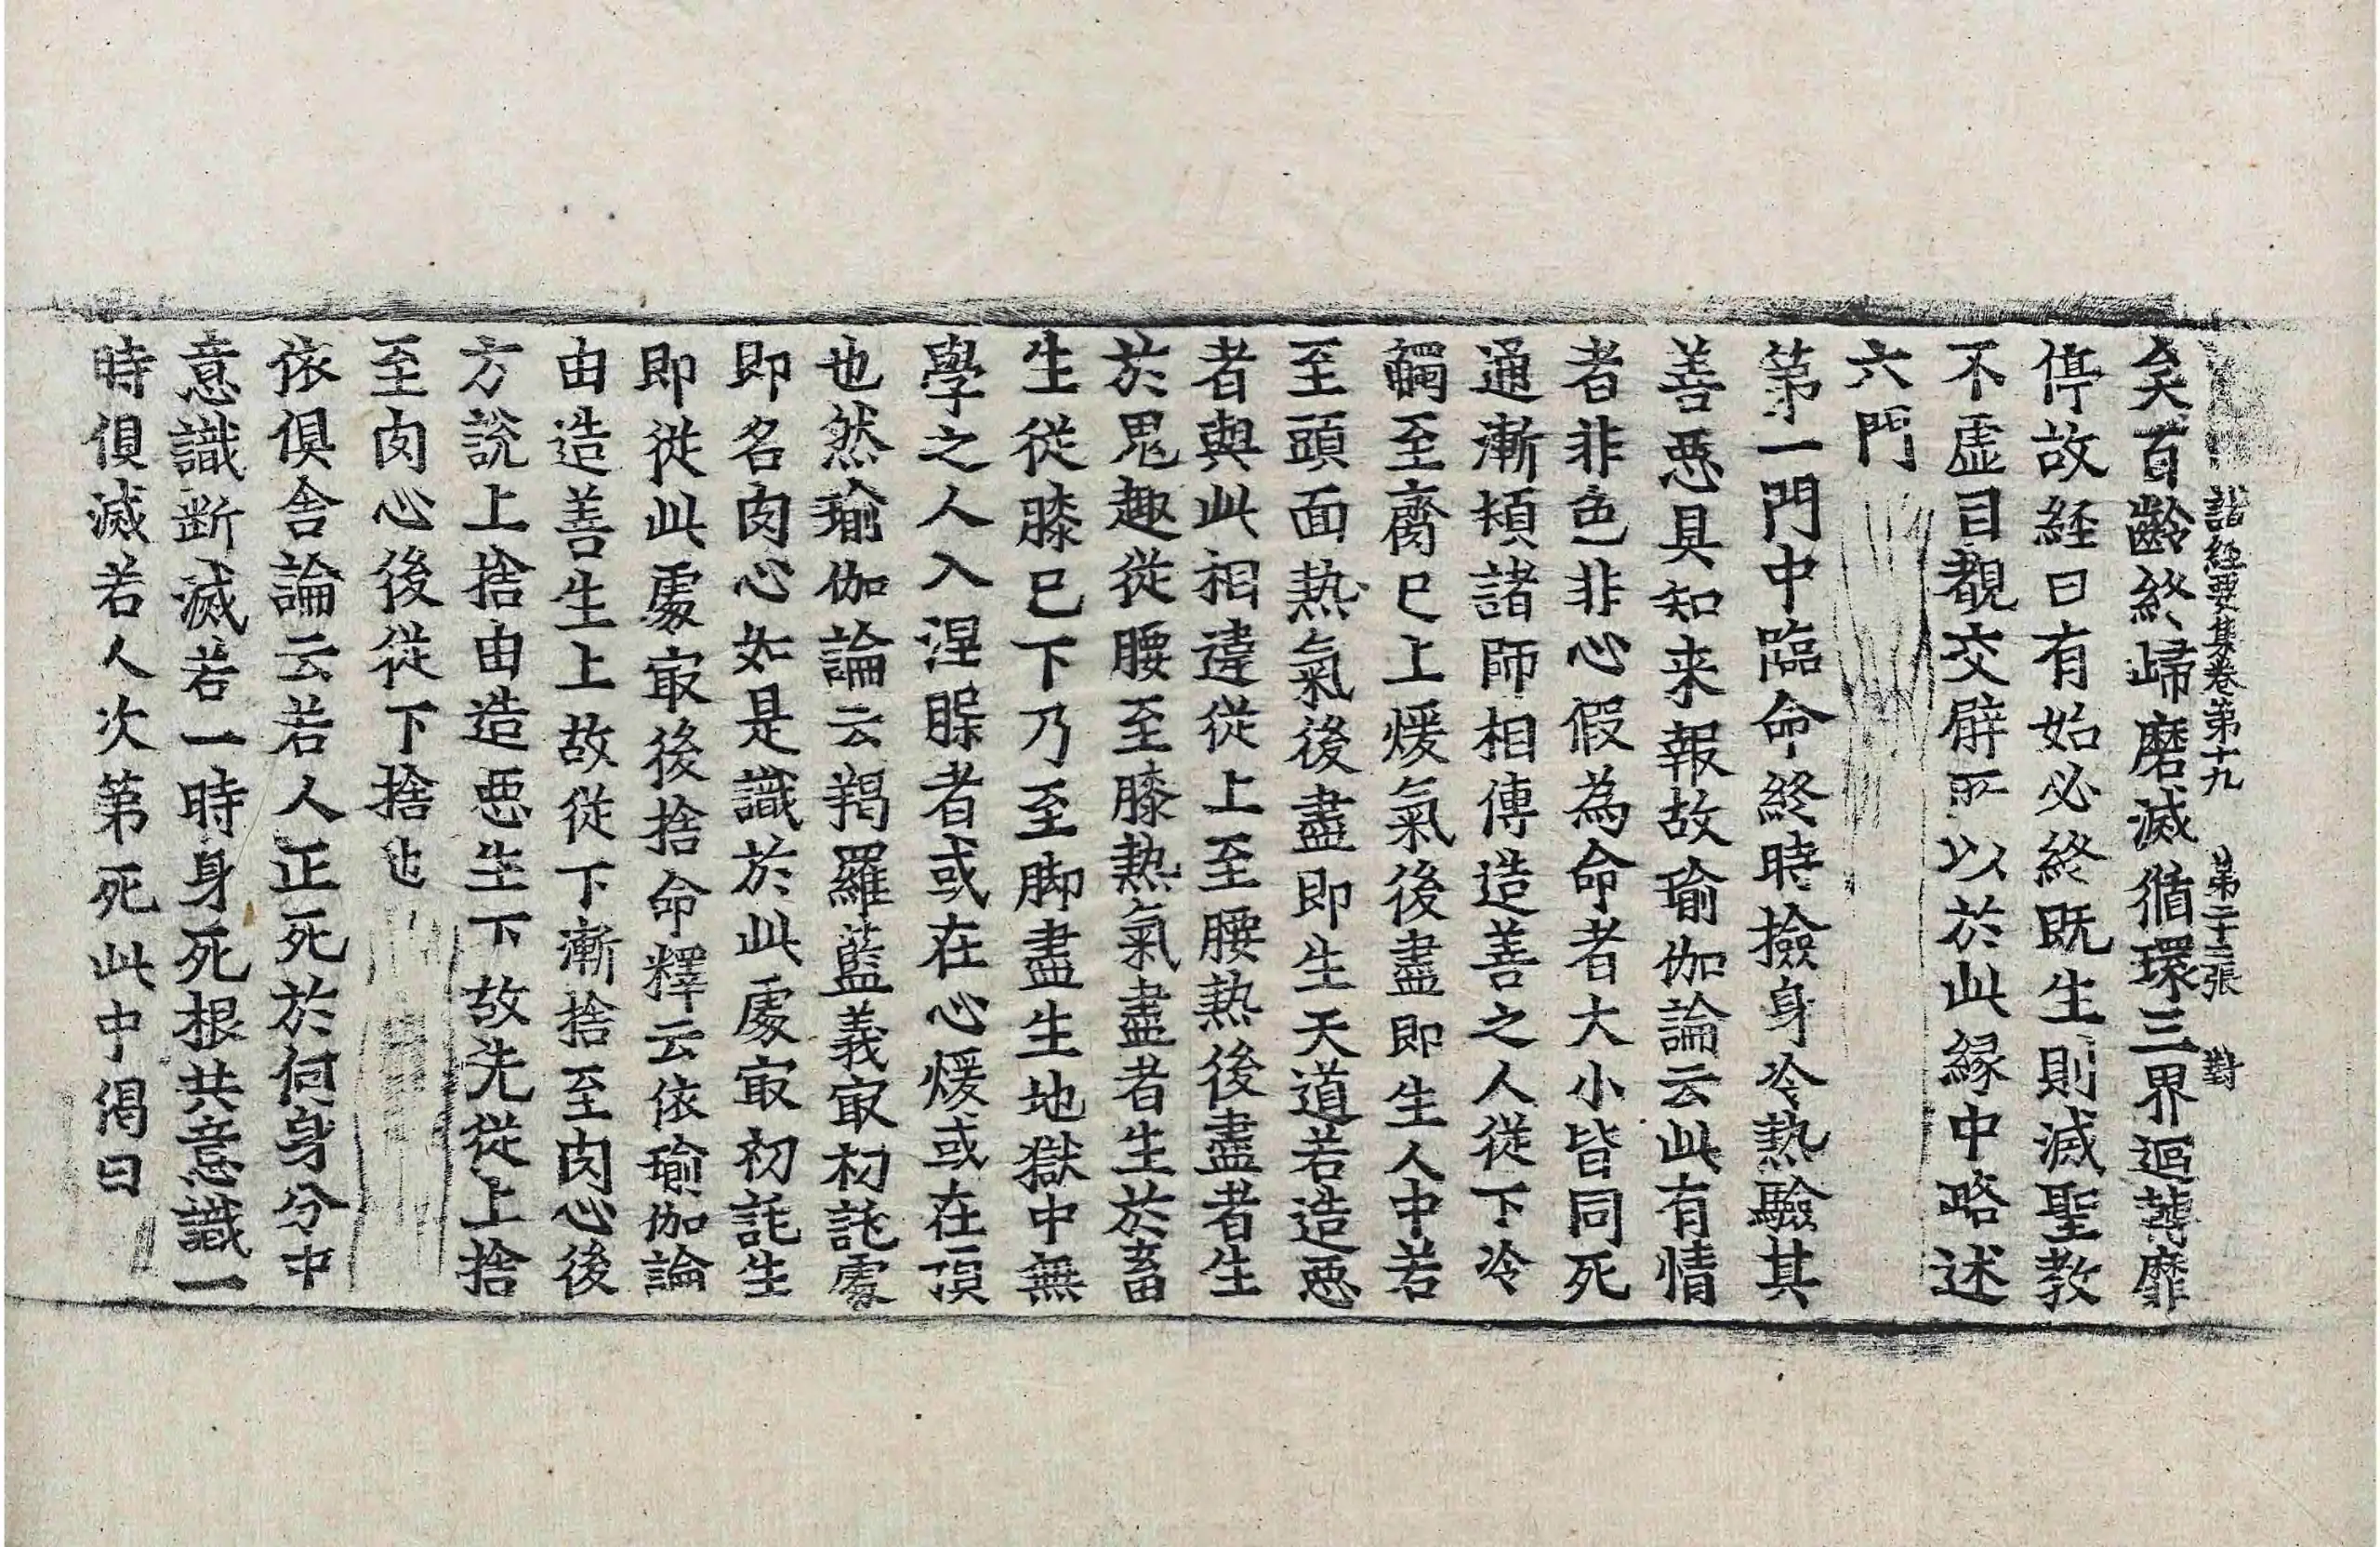 諸經要集卷第十九 第二十三張 對
矣百齡終歸磨滅循環三界迴薄靡
停故經曰有始必終既生則滅聖教
不虛目覩交臂所以於此緣中略述
六門
第一門中臨命終時撿身冷熱驗其
善惡具知来報故瑜伽論云此有情
者非色非心假為命者大小皆同死
通漸頓諸師相傳造善之人從下冷
觸至齊已上煖氣後盡即生人中若
至頭面熱氣後盡即生天道若造惡
者與此相違從上至腰熱後盡者生
於鬼趣從腰至膝熱氣盡者生於畜
生從膝已下乃至脚盡生地獄中無
學之人入涅槃者或在心煖或在頂
也然瑜伽論云羯羅藍義冣初託處
即名肉心如是識於此處冣初託生
即從此處冣後捨命釋云依瑜伽論
由造善生上故從下漸捨至肉心後
方說上捨由造惡生下故先從上捨
至肉心後從下捨也
依俱舍論云若人正死於何身分中
意識断滅若一時身死根共意識一
時俱滅若人次第死此中偈曰